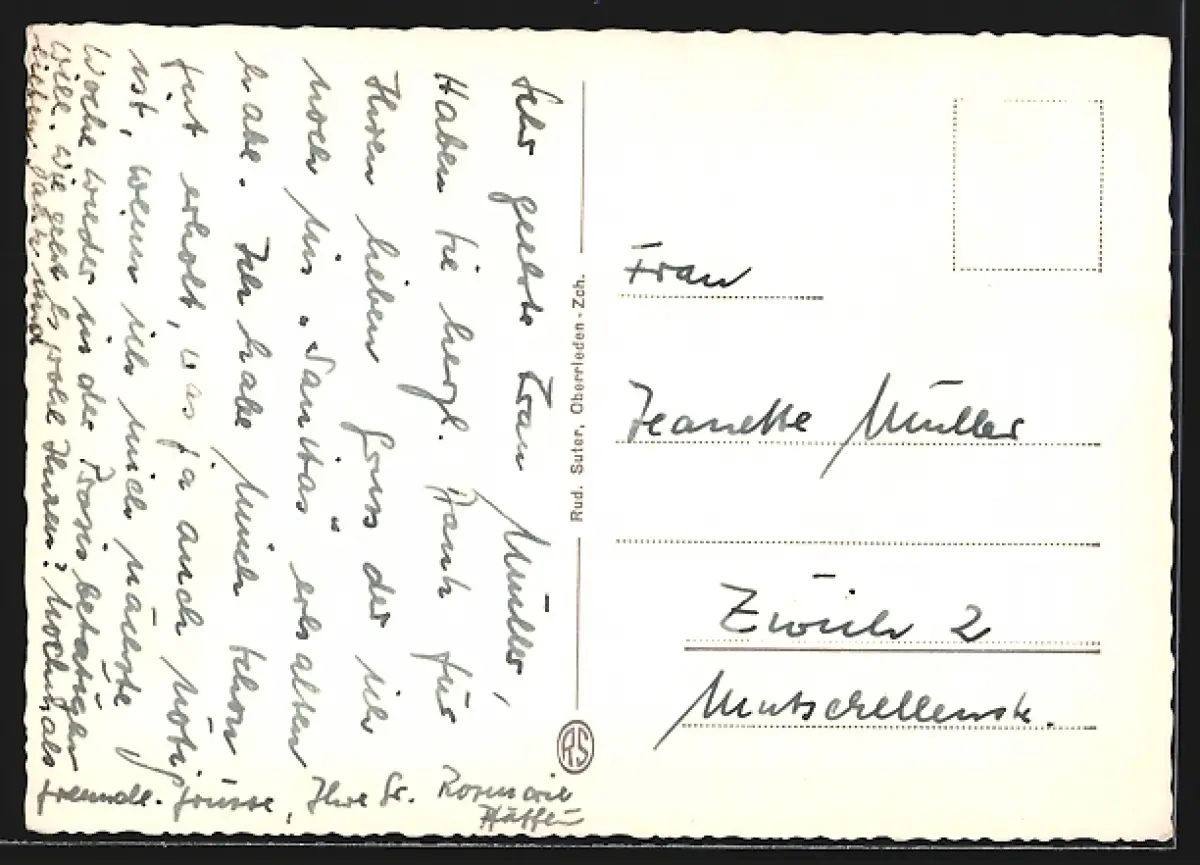 Sehr geehrte Frau Müller,
Haben Sie herzl. Dank für
Ihren lieben Gruss der ich
noch im "Sanitas" erhalten
habe. Ich habe mich schon
gut erholt, was ja auch nötig
ist, wenn ich mich nächste
Woche wieder in der Praxis betätigen
will. Wie geht es wohl Ihnen? Nochmals
lieben Dank und
freundl. Grüsse, Ihre Sr. Rosmarie
Rud. Suter, Oberrieden - Zch.
RS
Frau
Jeanette Müller
Zürich 2
Mutschellenstr.